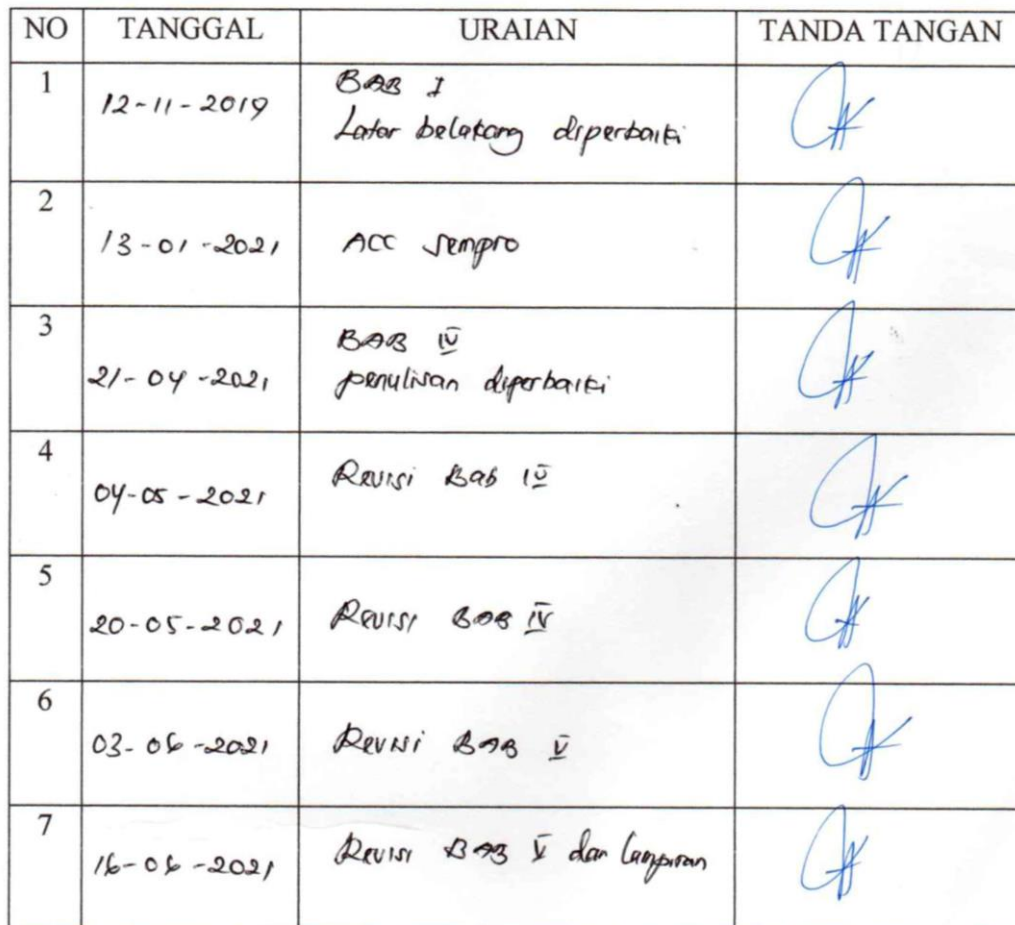 NO TANGGAL URAIAN TANDA TANGAN
1 12-11-2019 BAB I
Latar belakang diperbaiki
2 13-01-2021 ACC sempro
3 21-04-2021 BAB IV
penulisan diperbaiki
4 04-05-2021 Revisi Bab IV
5 20-05-2021 Revisi BAB IV
6 03-06-2021 Revisi BAB V
7 16-06-2021 Revisi BAB V dan lampiran